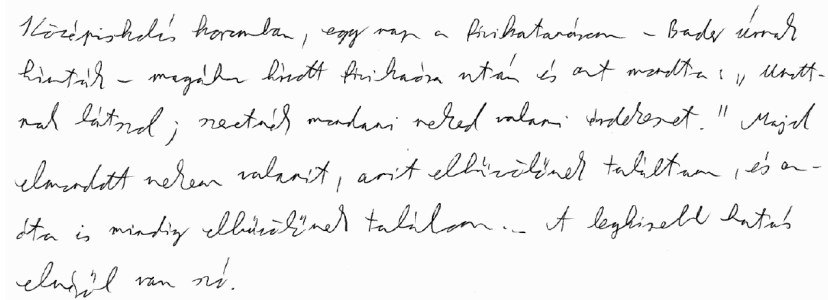 Középiskolás koromban, egy nap a fizikatanárom – Bader úrnak
hívták – magához hívott fizikaóra után és azt mondta: „Unott-
nak látszol; szeretnék mondani neked valami érdekeset." Majd
elmondott nekem valamit, amit elbűvölőnek találtam, és az-
óta is mindig elbűvölőnek találom... A legkisebb hatás
elvéről van szó.